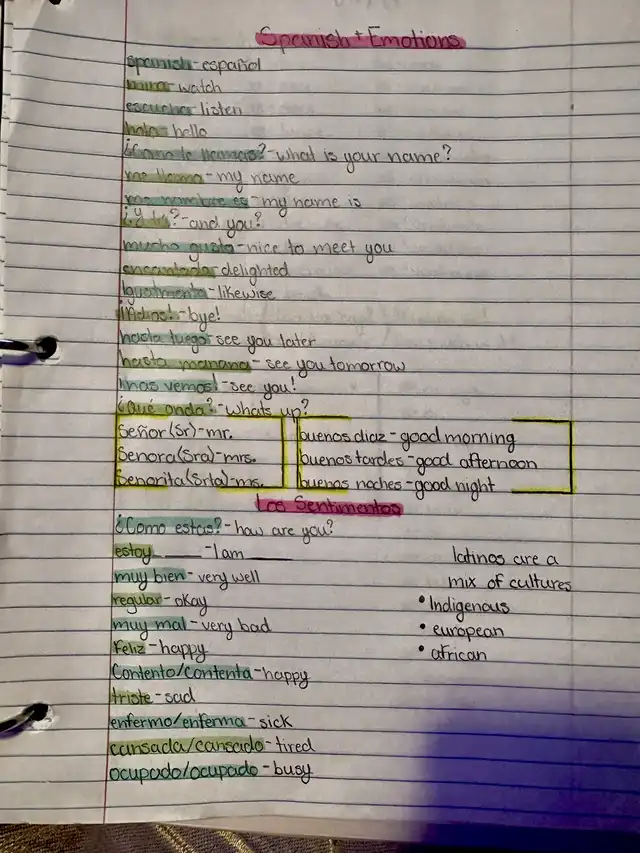 Spanish + Emotions
spanish - español
mirar - watch
escuchar - listen
hola - hello
¿Como te llamas? - what is your name?
me llamo - my name
me nombre es - my name is
¿y tú? - and you?
mucho gusto - nice to meet you
encantada - delighted
- likewise
- bye!
hasta luego! see you later
hasta manana - see you tomorrow
¡nos vemos! - see you!
¿Qué onda? - whats up?
Señor (Sr) - mr.
Senora (Sra) - mrs.
Senorita (Srta) - ms.
buenos diaz - good morning
buenos tardes - good afternoon
buenos noches - good night
Los Sentimentos
¿Como estas? - how are you?
estoy ____ - I am ____
muy bien - very well
regular - okay
muy mal - very bad
Feliz - happy
Contento/Contenta - happy
triste - sad
enfermo/enferma - sick
cansada/cansado - tired
ocupado/ocupado - busy
latinos are a
mix of cultures
• Indigenous
• european
• african